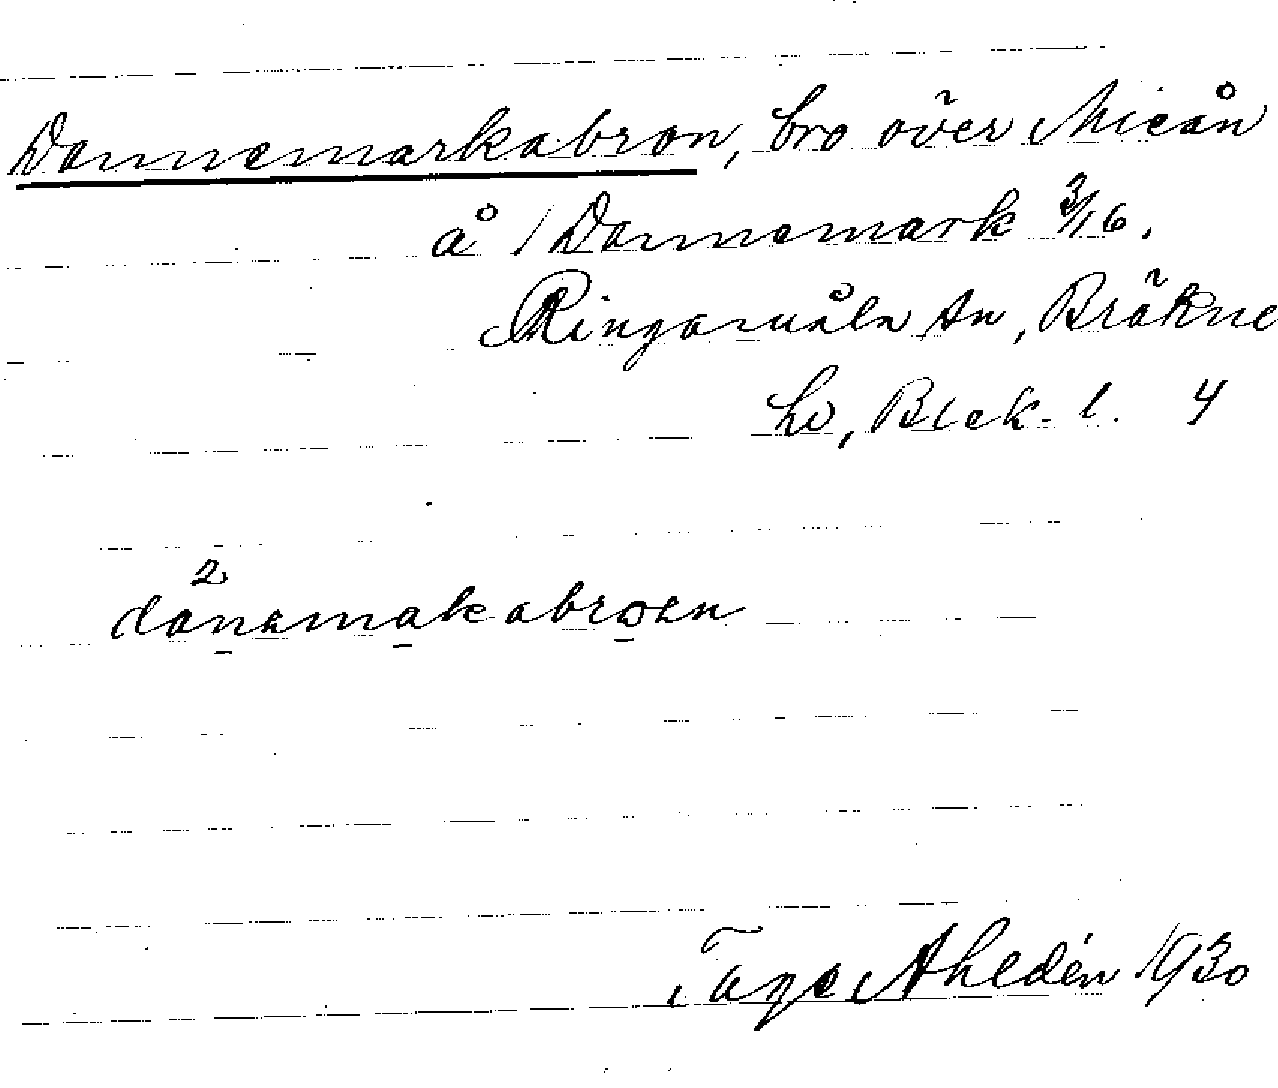 Dannemarkabron, bro över Mieån
å 1 Dannemark 3/16.
Ringamåla sn, Bräkne
hd, Blek. l. 4
2
danamakabroen
Tage Ahldén 1930